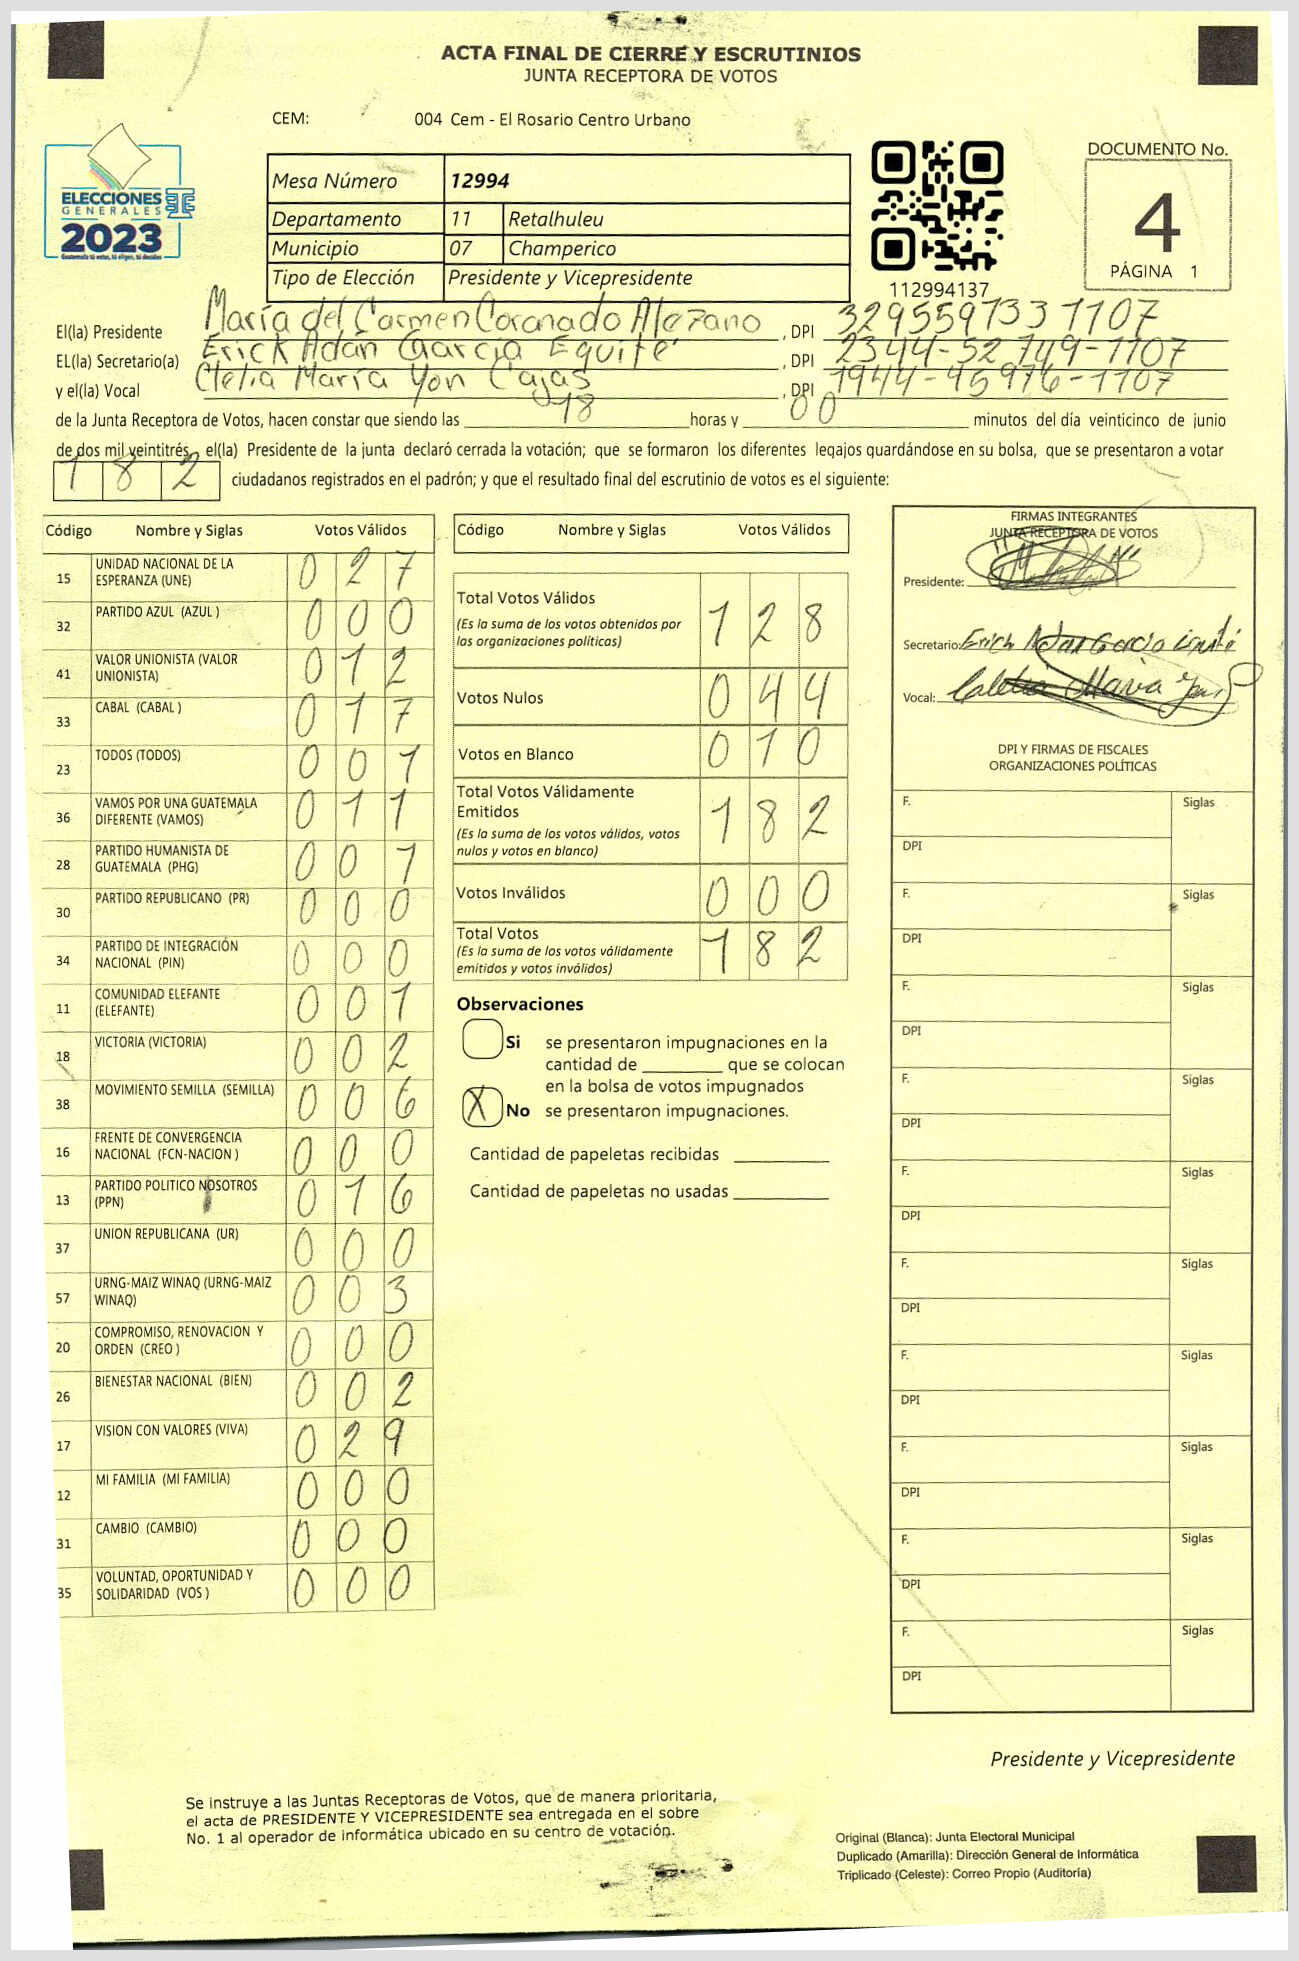 ACTA FINAL DE CIERRE Y ESCRUTINIOS
JUNTA RECEPTORA DE VOTOS
CEM: 004 Cem - El Rosario Centro Urbano
ELECCIONES
GENERALES
2023
Guatemala tú votas, tú eliges, tú decides
Mesa Número 12994
Departamento 11 Retalhuleu
Municipio 07 Champerico
Tipo de Elección Presidente y Vicepresidente
112994137
DOCUMENTO No.
4
PÁGINA 1
El(la) Presidente María del Carmen Coronado , DPI 3295597331107
EL(la) Secretario(a) Erick Adán Equité , DPI 2344-52749-1107
y el(la) Vocal Clelia María Yon Cajas , DPI 1944-45976-1107
de la Junta Receptora de Votos, hacen constar que siendo las 18 horas y 00 minutos del día veinticinco de junio
de dos mil veintitrés, el(la) Presidente de la junta declaró cerrada la votación; que se formaron los diferentes legajos guardándose en su bolsa, que se presentaron a votar
182 ciudadanos registrados en el padrón; y que el resultado final del escrutinio de votos es el siguiente:
Código Nombre y Siglas Votos Válidos
15 UNIDAD NACIONAL DE LA
ESPERANZA (UNE) 027
32 PARTIDO AZUL (AZUL ) 000
41 VALOR UNIONISTA (VALOR
UNIONISTA) 012
33 CABAL (CABAL ) 017
23 TODOS (TODOS) 001
36 VAMOS POR UNA GUATEMALA
DIFERENTE (VAMOS) 011
28 PARTIDO HUMANISTA DE
GUATEMALA (PHG) 001
30 PARTIDO REPUBLICANO (PR) 000
34 PARTIDO DE INTEGRACIÓN
NACIONAL (PIN) 000
11 COMUNIDAD ELEFANTE
(ELEFANTE) 001
18 VICTORIA (VICTORIA) 002
38 MOVIMIENTO SEMILLA (SEMILLA) 006
16 FRENTE DE CONVERGENCIA
NACIONAL (FCN-NACION ) 000
13 PARTIDO POLITICO NOSOTROS
(PPN) 016
37 UNION REPUBLICANA (UR) 000
57 URNG-MAIZ WINAQ (URNG-MAIZ
WINAQ) 003
20 COMPROMISO, RENOVACION Y
ORDEN (CREO ) 000
26 BIENESTAR NACIONAL (BIEN) 002
17 VISION CON VALORES (VIVA) 029
12 MI FAMILIA (MI FAMILIA) 000
31 CAMBIO (CAMBIO) 000
35 VOLUNTAD, OPORTUNIDAD Y
SOLIDARIDAD (VOS ) 000
Código Nombre y Siglas Votos Válidos
Total Votos Válidos 128
(Es la suma de los votos obtenidos por
las organizaciones políticas)
Votos Nulos 044
Votos en Blanco 010
Total Votos Válidamente
Emitidos 182
(Es la suma de los votos válidos, votos
nulos y votos en blanco)
Votos Inválidos 000
Total Votos 182
(Es la suma de los votos válidamente
emitidos y votos inválidos)
Observaciones
Si se presentaron impugnaciones en la
cantidad de ________ que se colocan
en la bolsa de votos impugnados
X No se presentaron impugnaciones.
Cantidad de papeletas recibidas ________
Cantidad de papeletas no usadas ________
FIRMAS INTEGRANTES
JUNTA RECEPTORA DE VOTOS
Presidente:
Secretario: Erick
Vocal: Maria
DPI Y FIRMAS DE FISCALES
ORGANIZACIONES POLÍTICAS
F. Siglas
DPI
F. Siglas
DPI
F. Siglas
DPI
F. Siglas
DPI
F. Siglas
DPI
F. Siglas
DPI
F. Siglas
DPI
F. Siglas
DPI
F. Siglas
DPI
F. Siglas
DPI
Presidente y Vicepresidente
Se instruye a las Juntas Receptoras de Votos, que de manera prioritaria,
el acta de PRESIDENTE Y VICEPRESIDENTE sea entregada en el sobre
No. 1 al operador de informática ubicado en su centro de votación.
Original (Blanca): Junta Electoral Municipal
Duplicado (Amarilla): Dirección General de Informática
Triplicado (Celeste): Correo Propio (Auditoría)